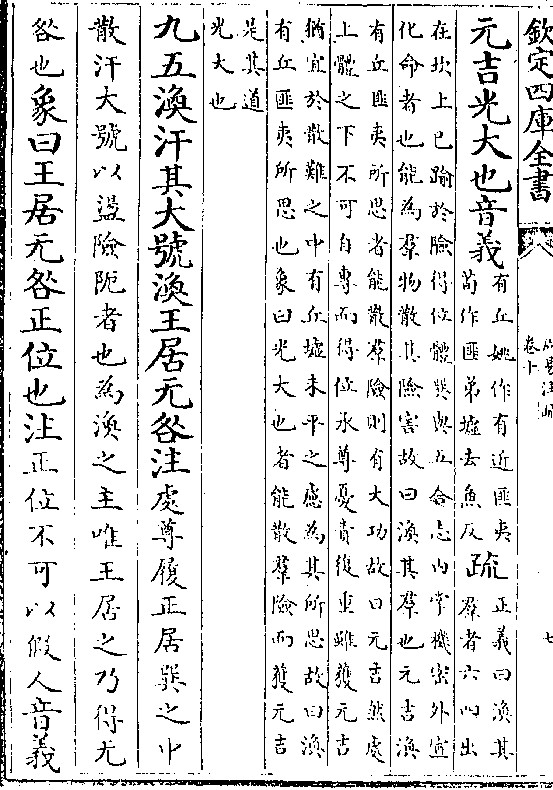 欽定四庫全書
周易注疏
卷十
七
元吉光大也音義
有丘姚作有近匪夷
荀作匪弟墟去魚反
疏
正義曰渙其
羣者六四出
在坎上已踰於險得位體巽與五合志内掌機密外宣
化命者也能為羣物散其險害故曰渙其羣也元吉渙
有丘匪夷所思者能散羣險則有大功故曰元吉然處
上體之下不可自專而得位承尊憂責復重雖獲元吉
猶宜於散難之中有丘墟未平之慮為其所思故曰渙
有丘匪夷所思也象曰光大也者能散羣險而獲元吉
是其道
光大也
九五渙汗其大號渙王居无咎注處尊履正居巽之中
散汗大號以盪險阨者也為渙之主唯王居之乃得无
咎也象曰王居无咎正位也注正位不可以假人音義